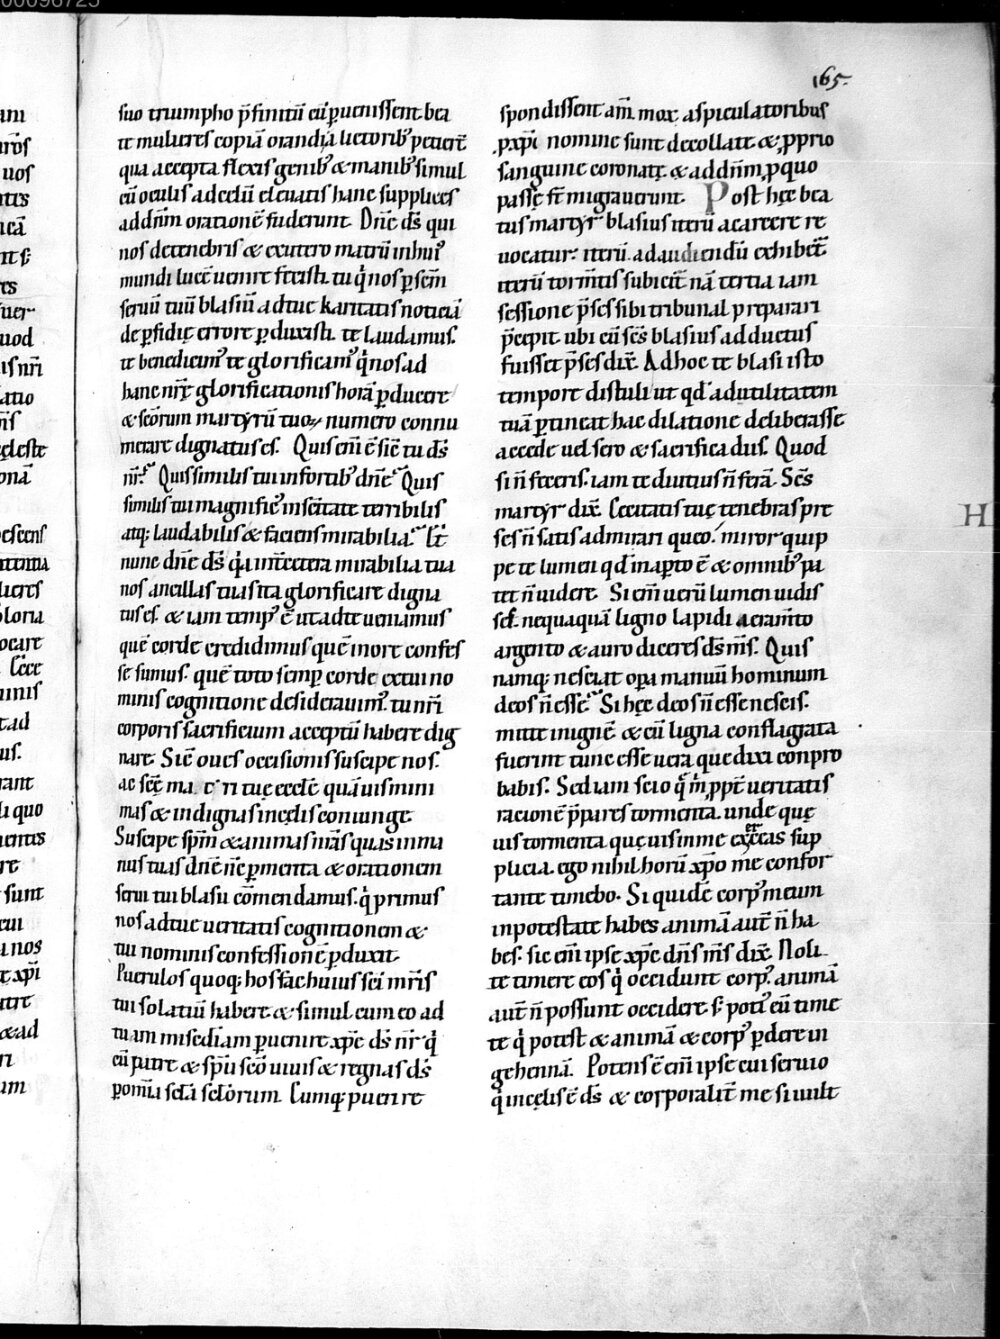 00096725
165.
suo triumpho p̄finitū eū ꝑuenissent bea
te mulieres copiā orandi a lictorib' petier̄t
qua accepta flexis genib' & manib' simul
cū oculis ad celū eleuatis hanc supplices
ad dn̄m orationē fuderunt. Dn̄e ds̄ qui
nos de tenebris & ex utero matrū in hui'
mundi lucē uenire fecisti. tu q̇ nos ꝑ sc̄m
seruū tuū blasiū ad tuę karitatis noticiā
de ꝑfidię errore ꝑduxisti. te laudamus.
te benedicim' te glorificam' q̇ nos ad
hanc nr̄ę glorificationis horā ꝑducere
& sc̄orum martyrū tuoꝝ numero connu
merare dignatus es. Quis em̄ ē sic̄ tu ds̄
nr̄. Quis similis tui in fortib' dn̄e. Quis
similis tui magnific' in sc̄itate terribilis
atq; laudabilis & faciens mirabilia. Et
nunc dn̄e ds̄ q̇a int̄ cetera mirabilia tua
nos ancillas tuas ita glorificare digna
tus es. & iam temp' ē ut ad te ueniamus
quē corde credidimus quē in ore confes
se sumus. quē toto semꝑ corde ex tui no
minis cognitione desiderauim'. tu nr̄i
corporis sacrificium acceptū habere dig
nare. Sic̄ oues occisionis suscipe nos.
ac sc̄ę tuę ecclē quāuis mini
mas & indignas in cęlis coniunge
Suscipe sp̄m & animas nr̄as quas in ma
nus tuas dn̄e nē ꝑmenta & orationem
serui tui blasii cōmendamus. q̇ primus
nos ad tuę ueritatis cognitionem &
tui nominis confessionē ꝑduxit.
Puerulos quoq; hos fac huius sc̄i mr̄is
tui solatiū habere & simul cum eo ad
tuam misc̄diam ꝑuenire xp̄e ds̄ nr̄ q̇
cū patre & sp̄u sc̄o uiuis & regnas ds̄
ꝑ om̄ia sc̄la sc̄lorum. Cumq; pueri re
spondissent am̄. mox a spiculatoribus
ꝓ xp̄i nomine sunt decollatę & ꝓprio
sanguine coronatę & ad dn̄m ꝓ quo
passę st̄ migrauerunt. Post hęc bea
tus martyr blasius iterū a carcere re
uocatur. iterū ad audiendū exhibet̄
iterū torm̄tis subicit̄ nā tertia iam
sessione p̄ses sibi tribunal preparari
p̄cepit. ubi cū sc̄s blasius adductus
fuisset p̄ses dix̄. Adhoc te blasi isto
tempore distuli ut qd' ad utilitatem
tuā ꝑtineat hac dilatione deliberasse
accede uel sero & sacrifica diis. Quod
si n̄ feceris. iam te diutius n̄ ferā. Sc̄s
martyr dix̄. Cecitatis tuę tenebras pre
ses n̄ satis admirari queo. miror quip
pe te lumen qd' in aꝑto ē & omnib' pa
tet n̄ uidere. Si em̄ uerū lumen uidis
ses. nequaquā ligno lapidi aeram̄to
argento & auro diceres ds̄ m̄s. Quis
namq; nesciat oꝑa manuū hominum
deos n̄ esse. Si hęc deos n̄ esse nescis.
mitte in ignē & cū ligna conflagrata
fuerint tunc esse uera que dixi conpro
babis. Sed iam scio q̇ m̄ ꝓpt̄ ueritatis
racionē p̄pares tormenta. unde quę
uis tormenta quęuis in me exerceas sup
plicia. ego nihil horū xp̄o me confor
tante timebo. Siquidē corp' meum
in potestate habes animā aut̄ n̄ ha
bes. sic em̄ ipse xp̄e dn̄s m̄s dix̄. Noli
te timere eos q̇ occidunt corp'. animā
aut̄ n̄ possunt occidere s; poti' eū time
te q̇ potest & animā & corp' ꝑdere in
gehennā. Potens ē em̄ ipse cui seruio
q̇ in cęlis ē ds̄ & corporalit̄ me si uult